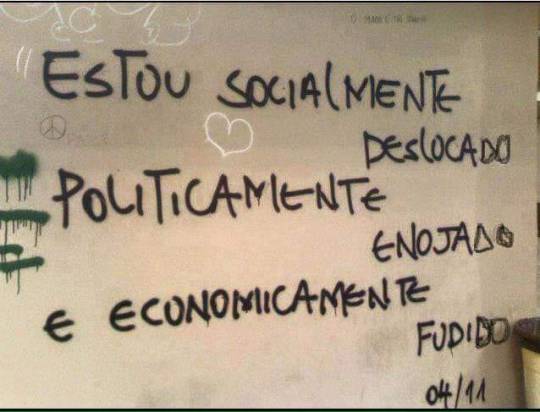 ESTOU SOCIALMENTE
DESLOCADO
POLITICAMENTE
ENOJADO
E ECONOMICAMENTE
FUDIDO
04/11